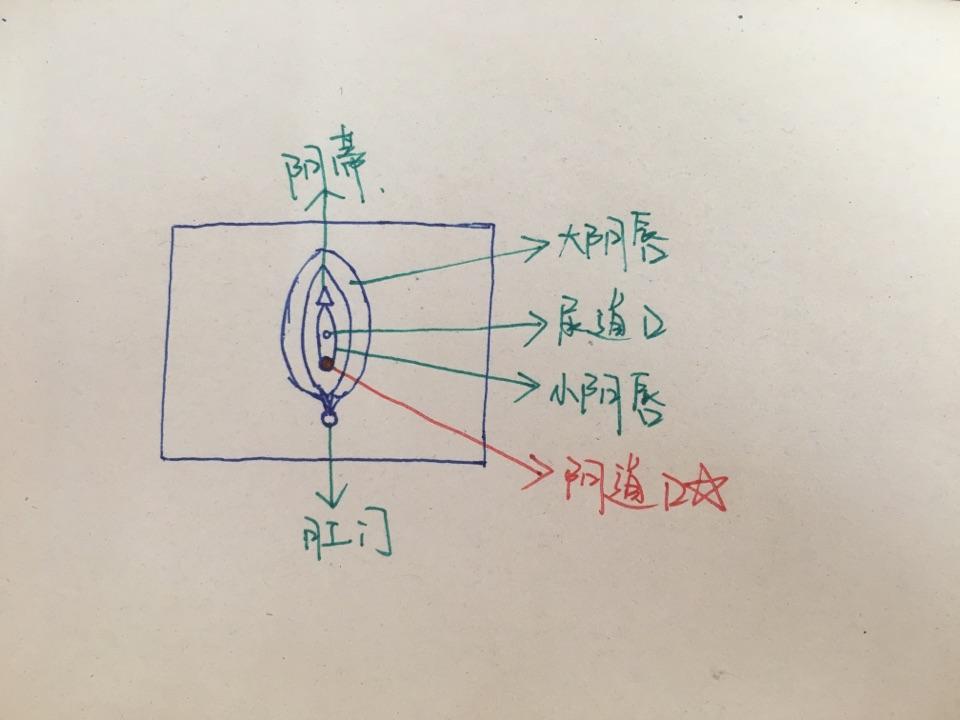 阴蒂.
大阴唇
尿道口
小阴唇
阴道口☆
肛门